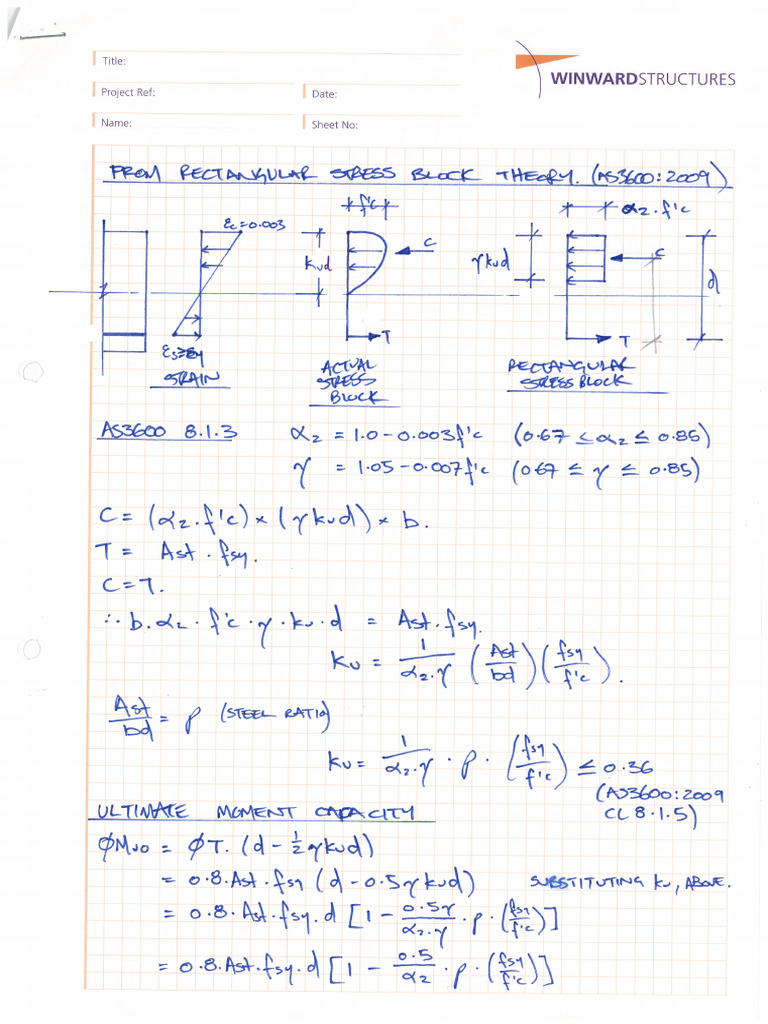 Title:
WINWARDSTRUCTURES
Project Ref:
Date:
Name:
Sheet No:
FROM RECTANGULAR STRESS BLOCK THEORY. (AS3600:2009)
εc=0.003
f'c
α2.f'c
kud
C
γkud
C
d
T
T
εs≥εy
STRAIN
ACTUAL STRESS BLOCK
RECTANGULAR STRESS BLOCK
AS3600 8.1.3 α2 = 1.0-0.003f'c (0.67 ≤ α2 ≤ 0.85)
γ = 1.05-0.007f'c (0.67 ≤ γ ≤ 0.85)
C = (α2.f'c) * (γkud) * b.
T = Ast.fsy.
C=T.
∴ b.α2.f'c.γ.ku.d = Ast.fsy.
ku = 1/α2.γ (Ast/bd)(fsy/f'c).
Ast/bd = ρ (STEEL RATIO)
ku = 1/α2.γ . ρ . (fsy/f'c) ≤ 0.36
(AS3600:2009
CL 8.1.5)
ULTIMATE MOMENT CAPACITY
ØMuo = ØT.(d-½γkud)
= 0.8.Ast.fsy (d-0.5γkud) SUBSTITUTING ku, ABOVE.
= 0.8.Ast.fsy.d [1 - 0.5γ/α2.γ . ρ . (fsy/f'c)]
= 0.8.Ast.fsy.d [1 - 0.5/α2 . ρ . (fsy/f'c)]